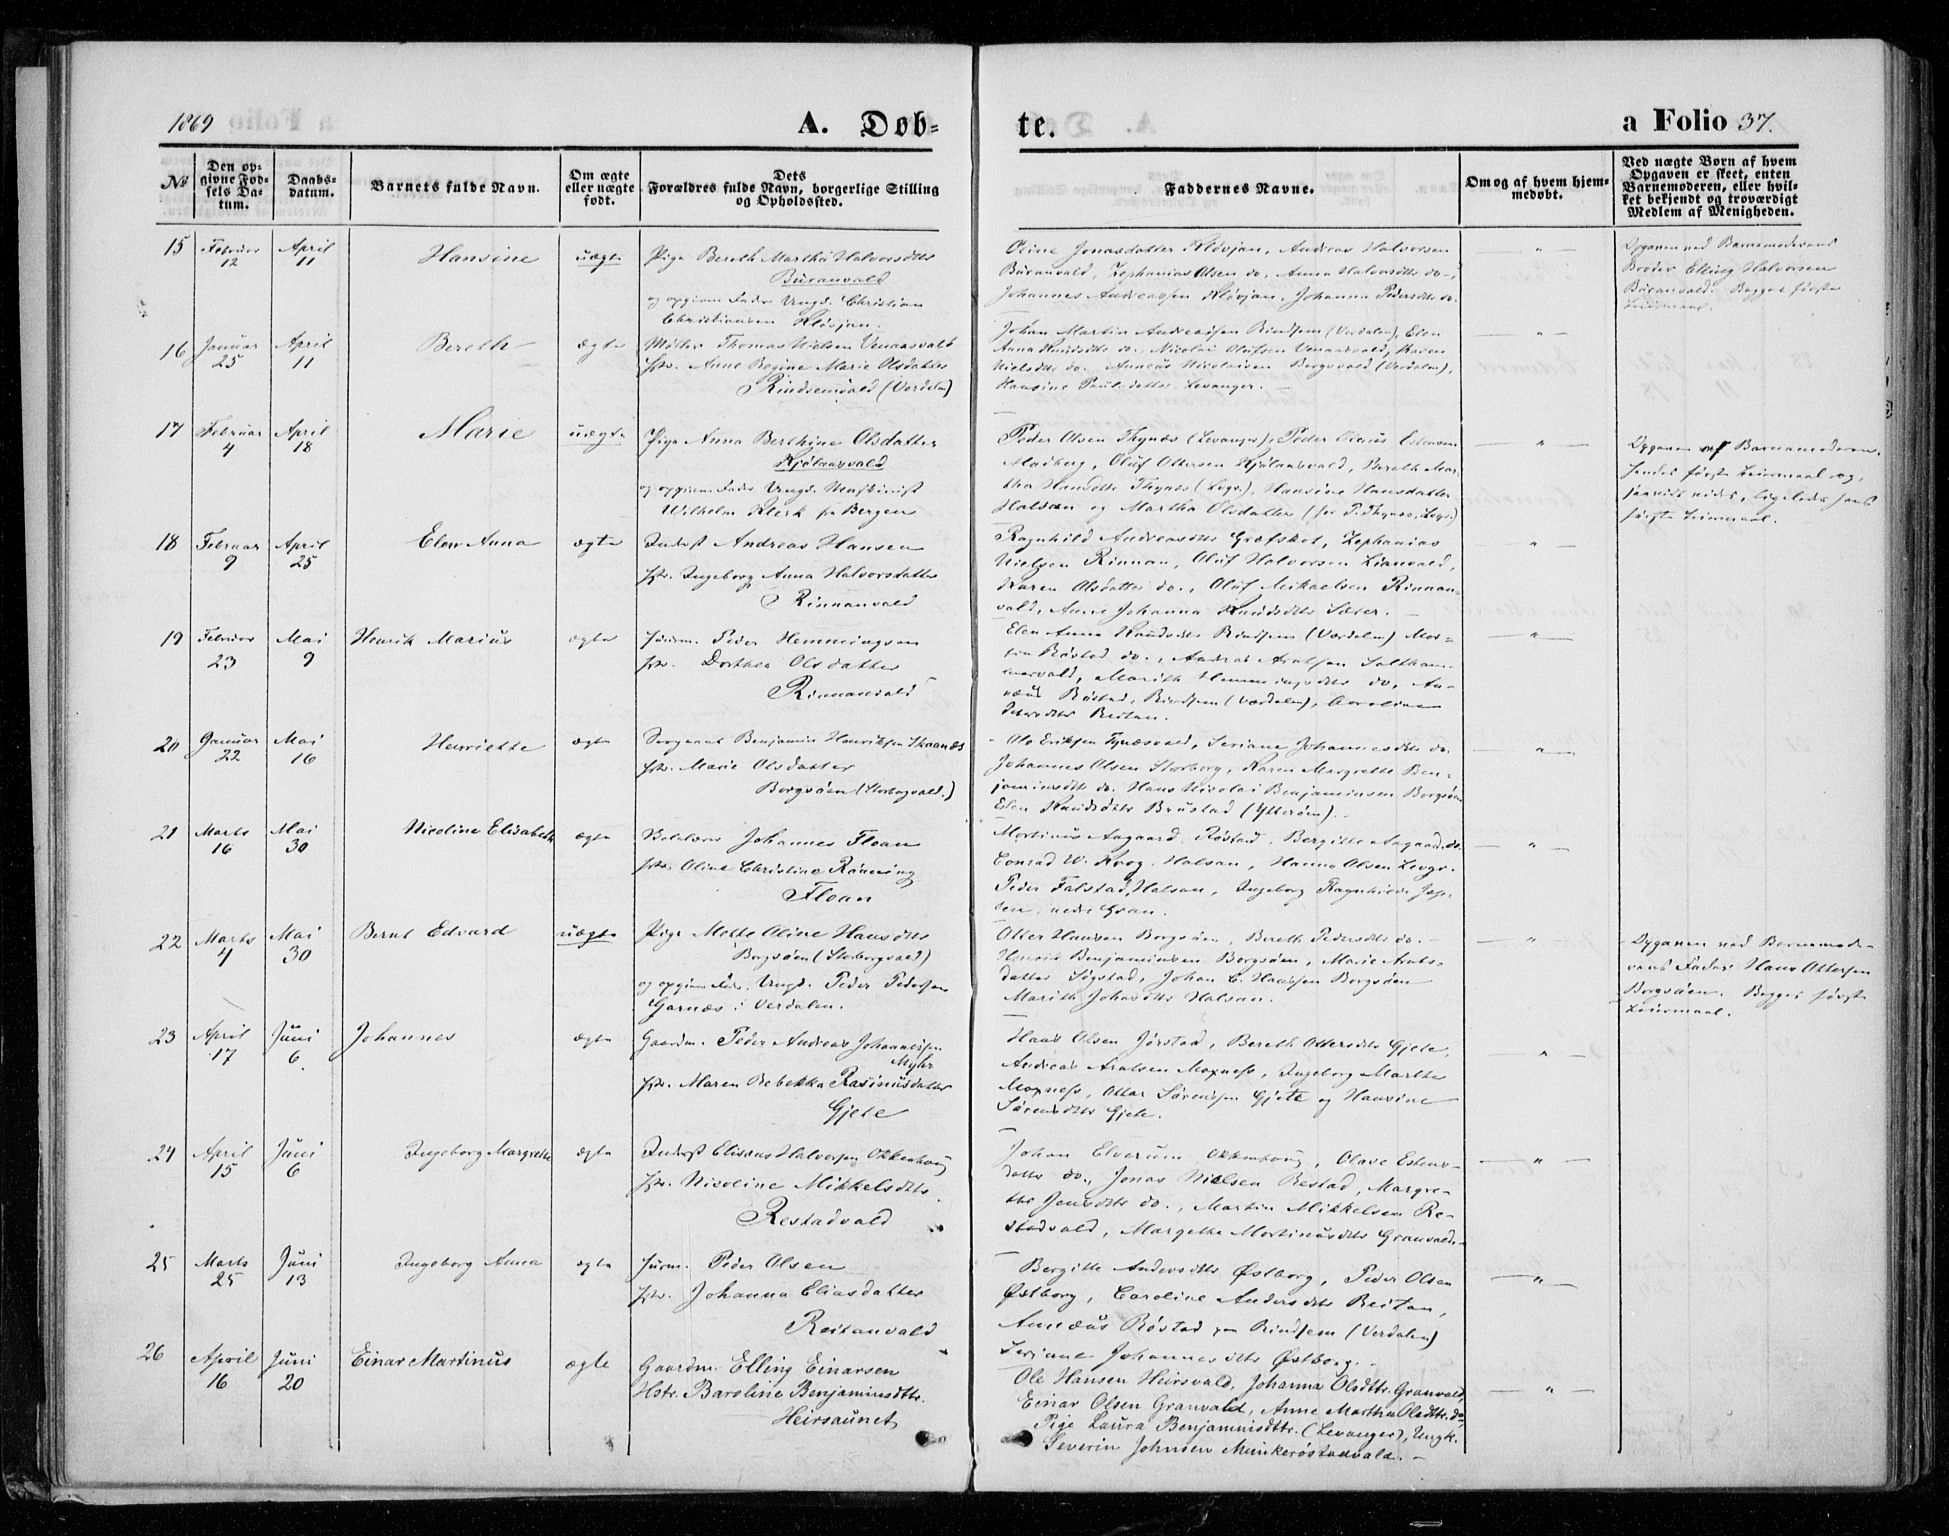 1869
A. Døb-
te.
a Folio 37.
No
Den op-
givne Fød-
sels Da-
tum.
Daabs-
datum.
Barnets fulde Navn.
Om ægte
eller uægte
født.
Dets
Forældres fulde Navn, borgerlige Stilling
og Opholdssted.
Faddernes Navne.
Om og af hvem hjem-
medøbt.
Ved uægte Børn af hvem
Opgaven er skeet, enten
Barnemoderen, eller hvil-
ket bekjendt og troværdigt
Medlem af Menigheden.
15 Februar 12 April 11 Hansine uægte
Pige Bereth Martha Halvorsdtr
Buranvald
og opgiven Fader Ungk. Christian
Christiansen Kløvjan.
Oline Jonasdatter Kløvjan, Andreas Halvorsen
Buranvald, Zephanias Olsen do., Anna Halvorsdtr do.,
Johannes Andreassen Kløvjan, Johanna Pedersdtr do.
Opgaven ved Barnemoderens
Broder Elling Halvorsen
Buranvald. Begges første
Leiermaal.
16 Januar 25 April 11 Bereth ægte
Møller Thomas Nielsen Venaasvald
Hstr. Anne Regine Marie Olsdatter
Rindsemvald (Verdalen)
Johan Martin Andreassen Rindsem (Verdalen), Elen
Anna Knudsdtr do., Nicolai Olufsen Venaasvald, Karen
Nielsdtr do. Anneus Nicolaisen Bergsvald (Verdalen),
Hansine Paulsdatter Levanger.
17 Februar 4 April 18 Marie uægte
Pige Anna Berthine Olsdatter
Kjølaasvald
og opgiven Fader Ungk. Maskinist
Wilhelm Klerk fra Bergen
Peder Olsen Thynæs (Levanger), Peder Olaus Estensen
Madberg, Oluf Ottersen Kjølaasvald, Bereth Mar-
tha Hansdtr Thynæs (Levgr.), Hansine Hansdatter
Halsan og Martha Olsdatter (hos P. Thynæs, Levgr.)
Opgaven af Barnemoderen.
Hendes første Leiermaal og,
saavidt vides, ligeledes hans
første Leiermaal.
18 Februar 9 April 25 Elen Anna ægte
Inderst Andreas Hansen
Hstr. Ingeborg Anna Halvorsdatter
Rinnanvald
Ragnhild Andreasdtr Græfsket, Zephanias
Nielsen Rinnan, Oluf Halvorsen Lianvald,
Karen Olsdatter do., Oluf Mikaelsen Rinnan-
vald, Anne Johanna Knudsdtr Sæter.
19 Februar 23 Mai 9 Henrik Marius ægte
Huusm. Peder Hemmingsen
Hstr. Dorthea Olsdatter
Rinnanvald
Elen Anna Knudsdtr Rindsem (Værdalen) Mor-
ten Røstad do., Andreas Arntsen Saltham-
mervald, Marith Hemmingsdtr do., An-
næus Røstad, Rindsem (Værdalen), Caroline
Reitan.
20 Januar 22 Mai 16 Henriette ægte
Sergeant Benjamin Henriksen Skaanæs
Hstr. Marie Olsdatter
Borgsøen (Storborgvald.)
Ole Eriksen Tynæsvald, Seriane Johannesdtr do.
Johannes Olsen Storborg, Karen Margrethe Ben-
jaminsdtr do. Hans Nicolai Benjaminsen Borgsøen
Elen Knudsdtr Brustad (Ytterøen).
21 Marts 16 Mai 30 Nicoline Elisabeth ægte
Johannes Floan
Hstr. Oline Christine Rönning
Floan
Mortinus Aagaard, Røstad, Bergitte Aagaard do.
Conrad W. Krog, Halsan, Hanna Olsen Levgr.
Peder Falstad, Halsan, Ingeborg Ragnhilde Jep-
sen, nedre Gran.
22 Marts 4 Mai 30 Bernt Edvard uægte
Pige Mette Oline Hansdtr
Borgsøen (Storborgvald)
og opgiven Fader. Ungk. Peder Pedersen
Garnæs i Verdalen.
Otter Hansen Borgsøen, Bereth Pedersdtr do.
Henrik Benjaminsen Borgsøen, Marie Arnts-
datter Søgstad, Johan C. Hansen Borgsøen
Marith Johnsdtr Halsan.
Opgaven ved Barnemode-
rens Fader Hans Ottersen
Borgsøen. Begges første
Leiermaal.
23 April 17 Juni 6. Johannes ægte
Gaardm. Peder Andreas Johannessen
Myhr
Hstr. Maren Rebekka Rasmusdatter
Gjete
Hans Olsen Jørstad, Bereth Ottersdtr Gjete,
Andreas Arntsen Moxness, Ingeborg Martha
Moxness, Otter Sørensen Gjete og Hansine
Sørensdtr Gjete.
24 April 15 Juni 6 Ingeborg Margrethe ægte
Inderst Elisæus Halvorsen Okkenhoug
Hstr. Nicoline Mikkelsdtr.
Restadvald
Johan Elverum Okkenhoug, Olave Estens-
datter do., Jonas Nielsen Restad, Margre-
the Jensdtr do., Martin Mikkelsen Re-
stadvald, Margethe Mortinusdtr Granvald.
25 Marts 25 Juni 13 Ingeborg Anna ægte
Huusm. Peder Olsen
Hstr. Johanna Eliasdatter
Reitanvald
Bergitte Andersdtr Østborg, Peder Olsen
Østborg, Caroline Andersdtr Reitan,
Annæus Røstad paa Rindsem (Verdalen)
Seriane Johannesdtr Østborg.
26 April 16 Juni 20 Einar Martinus ægte
Gaardm. Elling Einarsen
Hstr. Baroline Benjaminsdtr.
Heirsaunet
Ole Hansen Heirsvald, Johanna Olsdtr. Granvald,
Einar Olsen Granvald, Anne Martha Olsdtr. do,
Pige Laura Benjaminsdtr. (Levanger), Ungk.
Severin Johnsen Munkerøstadvald.